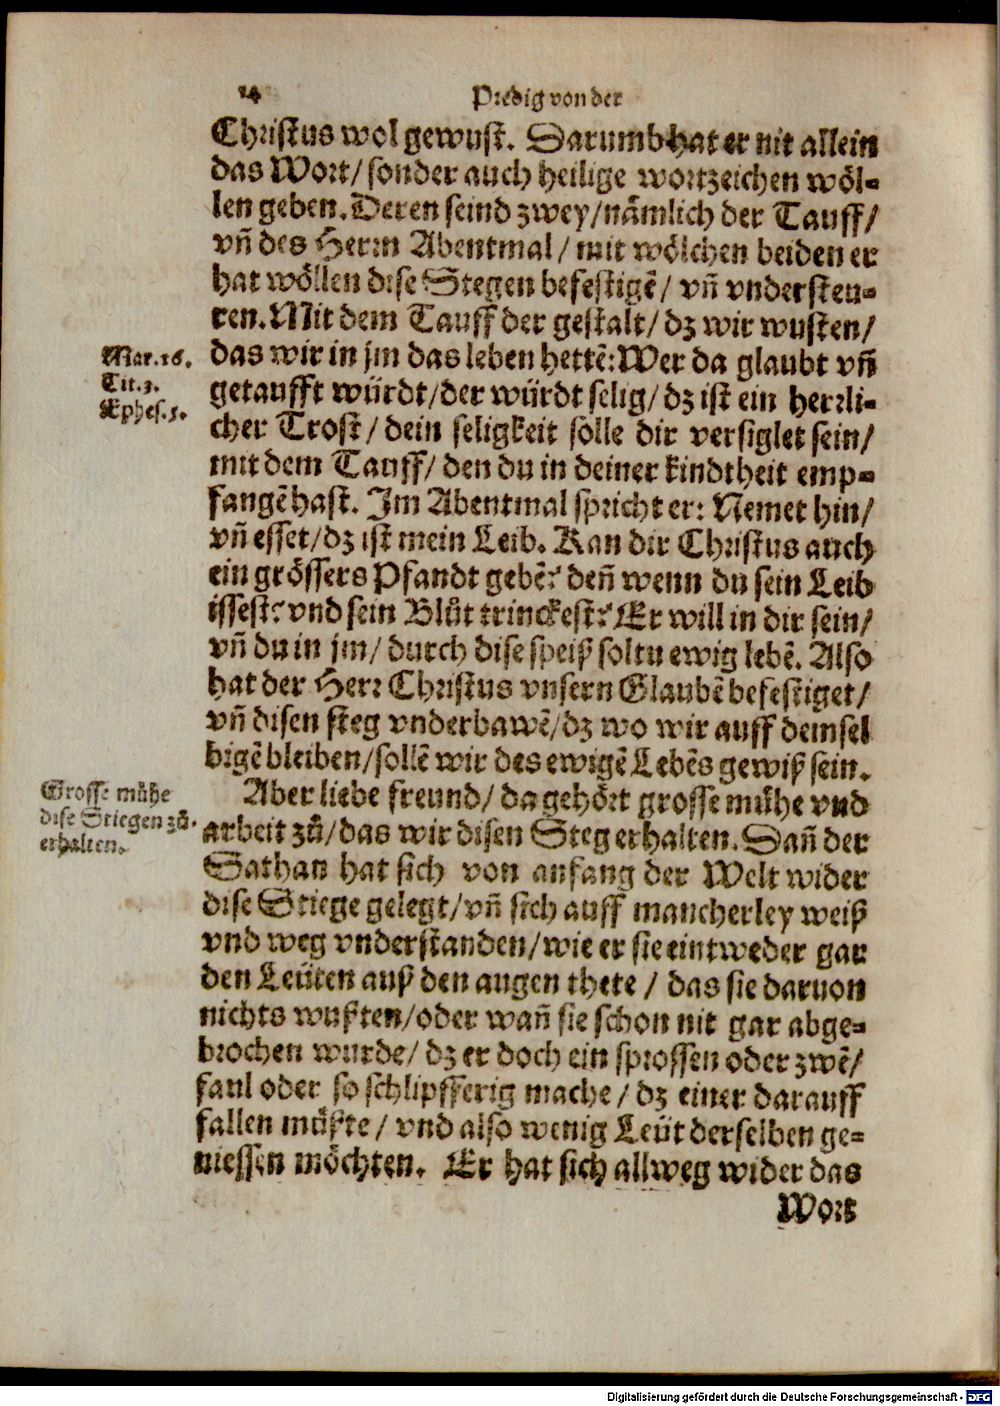 14
Predig von der
Christus wol gewust. Darumb hat er nit allein
das Wort/ sonder auch heilige wortzeichen wöl-
len geben. Deren seind zwey/ nämlich der Tauff/
vñ des Herrn Abentmal/ mit wölchen beiden er
hat wöllen dise Stegen befestigē/ vñ vndersteu-
ren. Mit dem Tauff der gestalt/ dz wir wusten/
das wir in jm das leben hettē: Wer da glaubt vñ
getaufft würdt/ der würdt selig/ dz ist ein herrli-
cher Trost/ dein seligkeit sölle dir versiglet sein/
mit dem Tauff/ den du in deiner kindtheit emp-
fangē hast. Im Abentmal spricht er: Nemet hin/
vñ esset/ dz ist mein Leib. Kan dir Christus auch
ein grössers Pfandt gebē? deñ wenn du sein Leib
issest? vnd sein Blůt trinckest? Er will in dir sein/
vñ du in jm/ durch dise speiß soltu ewig lebē. Also
hat der Herr Christus vnsern Glaubē befestiget/
vñ disen steg vnderbawē/ dz wo wir auff demsel
bigē bleiben/ sollē wir des ewigē Lebēs gewiß sein.
Aber liebe freund/ da gehört grosse mühe vnd
arbeit zů/ das wir disen Steg erhalten. Dañ der
Sathan hat sich von anfang der Welt wider
dise Stiege gelegt/ vñ sich auff mancherley weiß
vnd weg vnderstanden/ wie er sie eintweder gar
den Leüten auß den augen thete/ das sie daruon
nichts wußten/ oder wañ sie schon nit gar abge-
brochen wurde/ dz er doch ein sprossen oder zwē/
faul oder so schlipfferig mache/ dz einer darauff
fallen müßte/ vnd also wenig Leüt derselben ge-
niessen möchten. Er hat sich allweg wider das
Wort
Mar.16.
Tit.3.
Ephes.5.
Grosse mühe
dise Stiegen zů
erhalten.
Digitalisierung gefördert durch die Deutsche Forschungsgemeinschaft - DFG